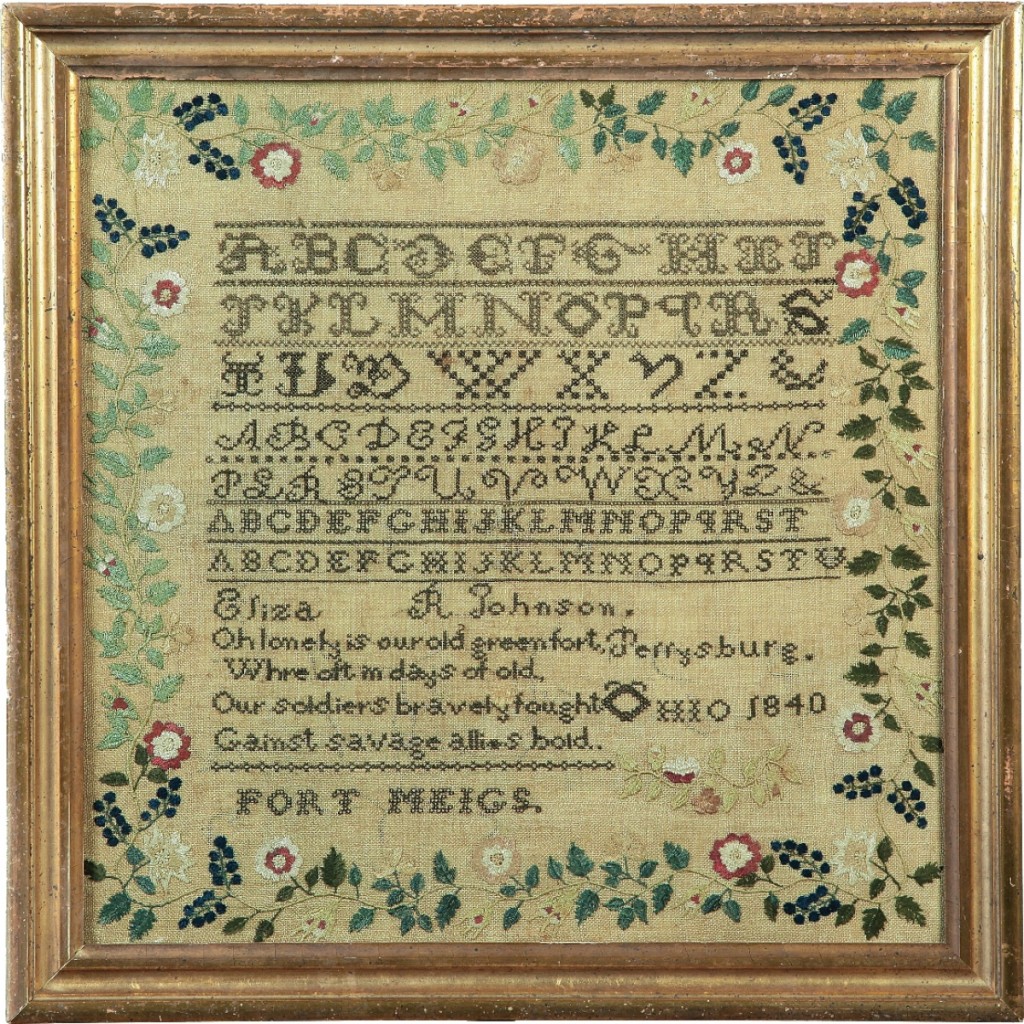 ABCDEFGHIJ
JKLMNOPQRS
TUVWXYZ&
ABCDEFGHIJKLMN
PQRSTUVWXYZ&
ABCDEFGHIJKLMNOPQRST
ABCDEFGHIJKLMNOPQRSTU
Eliza R Johnson.
Oh lonely is our old green fort, Perrysburg.
Whre oft in days of old,
Our soldiers bravely fought OHIO 1840
Gainst savage allies bold..
FORT MEIGS.